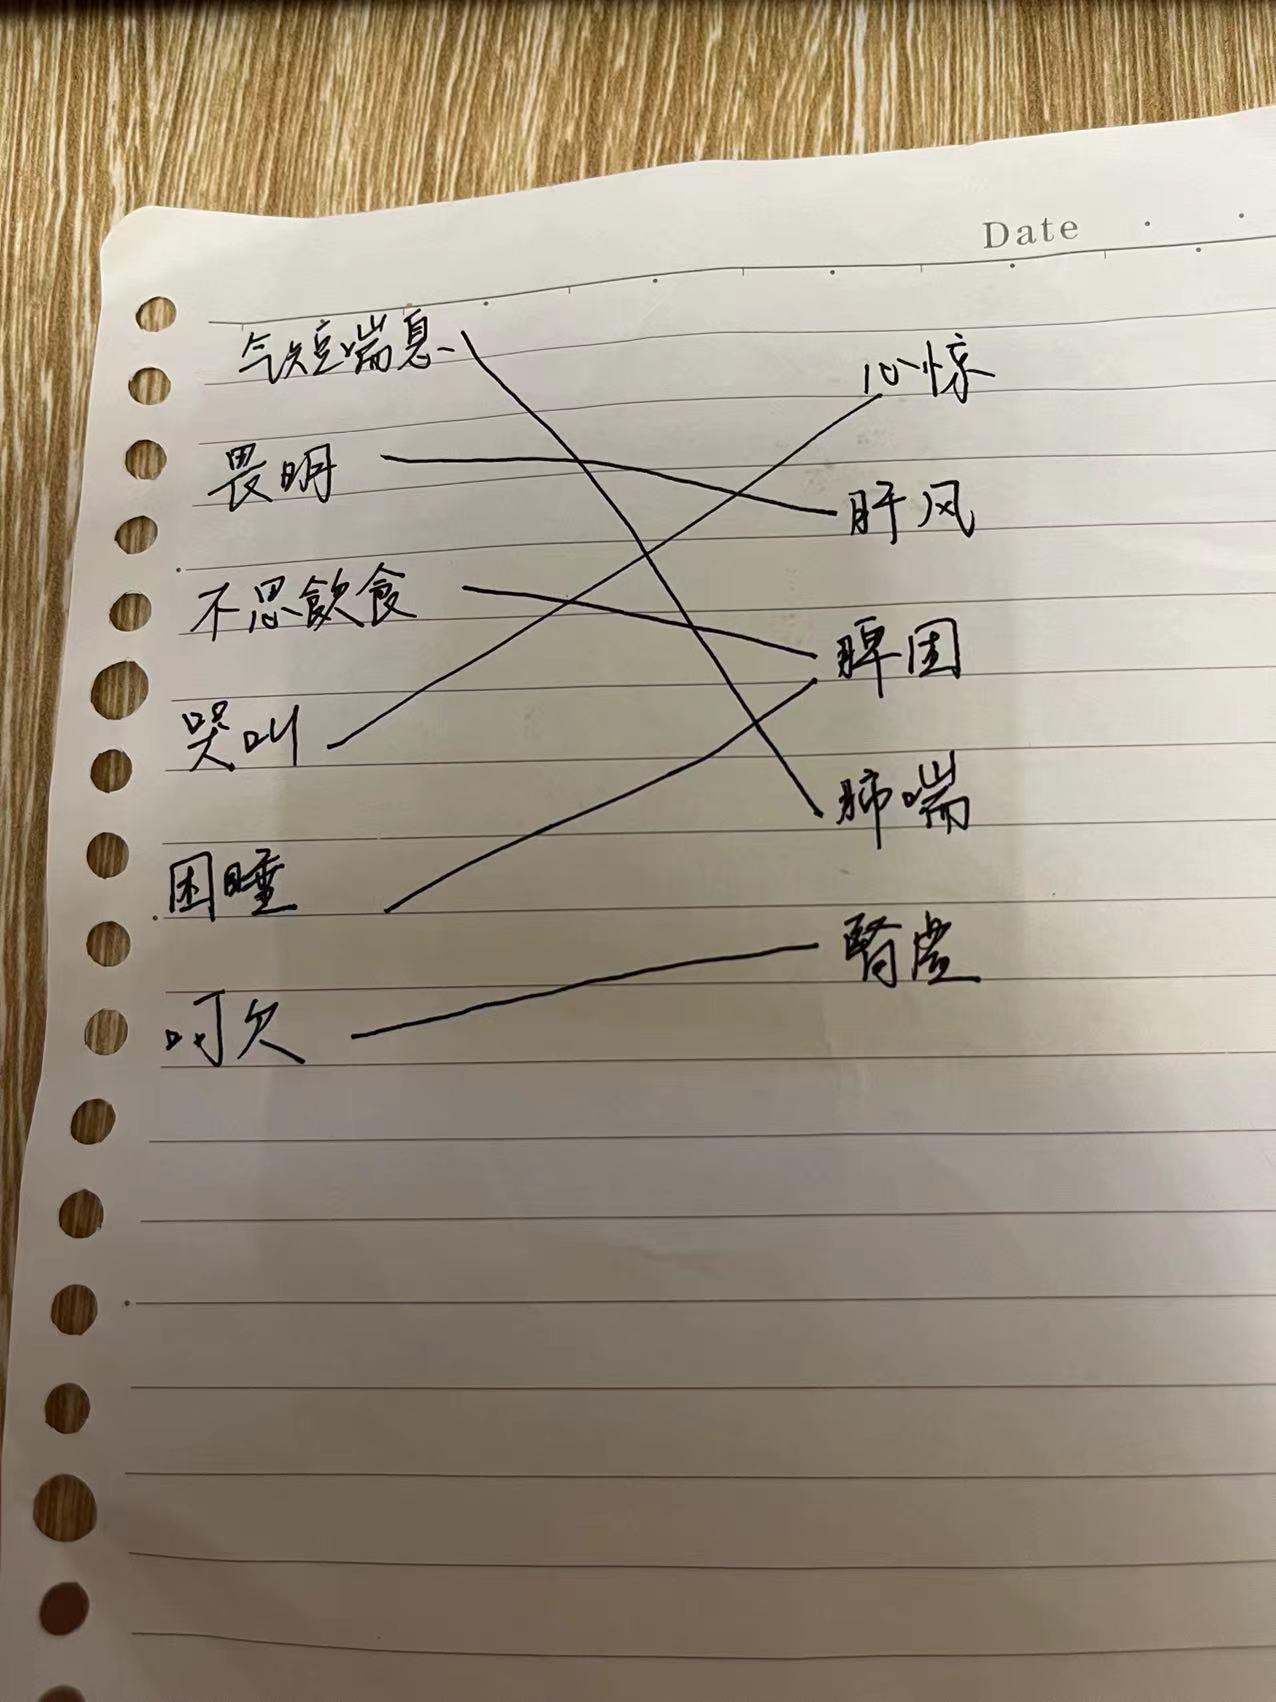 Date
气短喘息
心惊
畏明
肝风
不思飲食
脾困
哭叫
肺喘
困睡
腎虚
呵欠